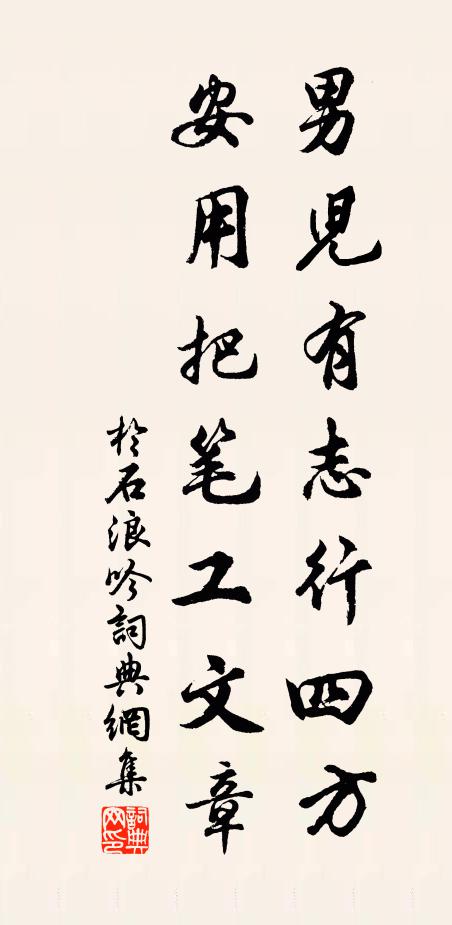 男兒有志行四方
安用把笔工文章
於石浪吟詞典網集
詞典网印